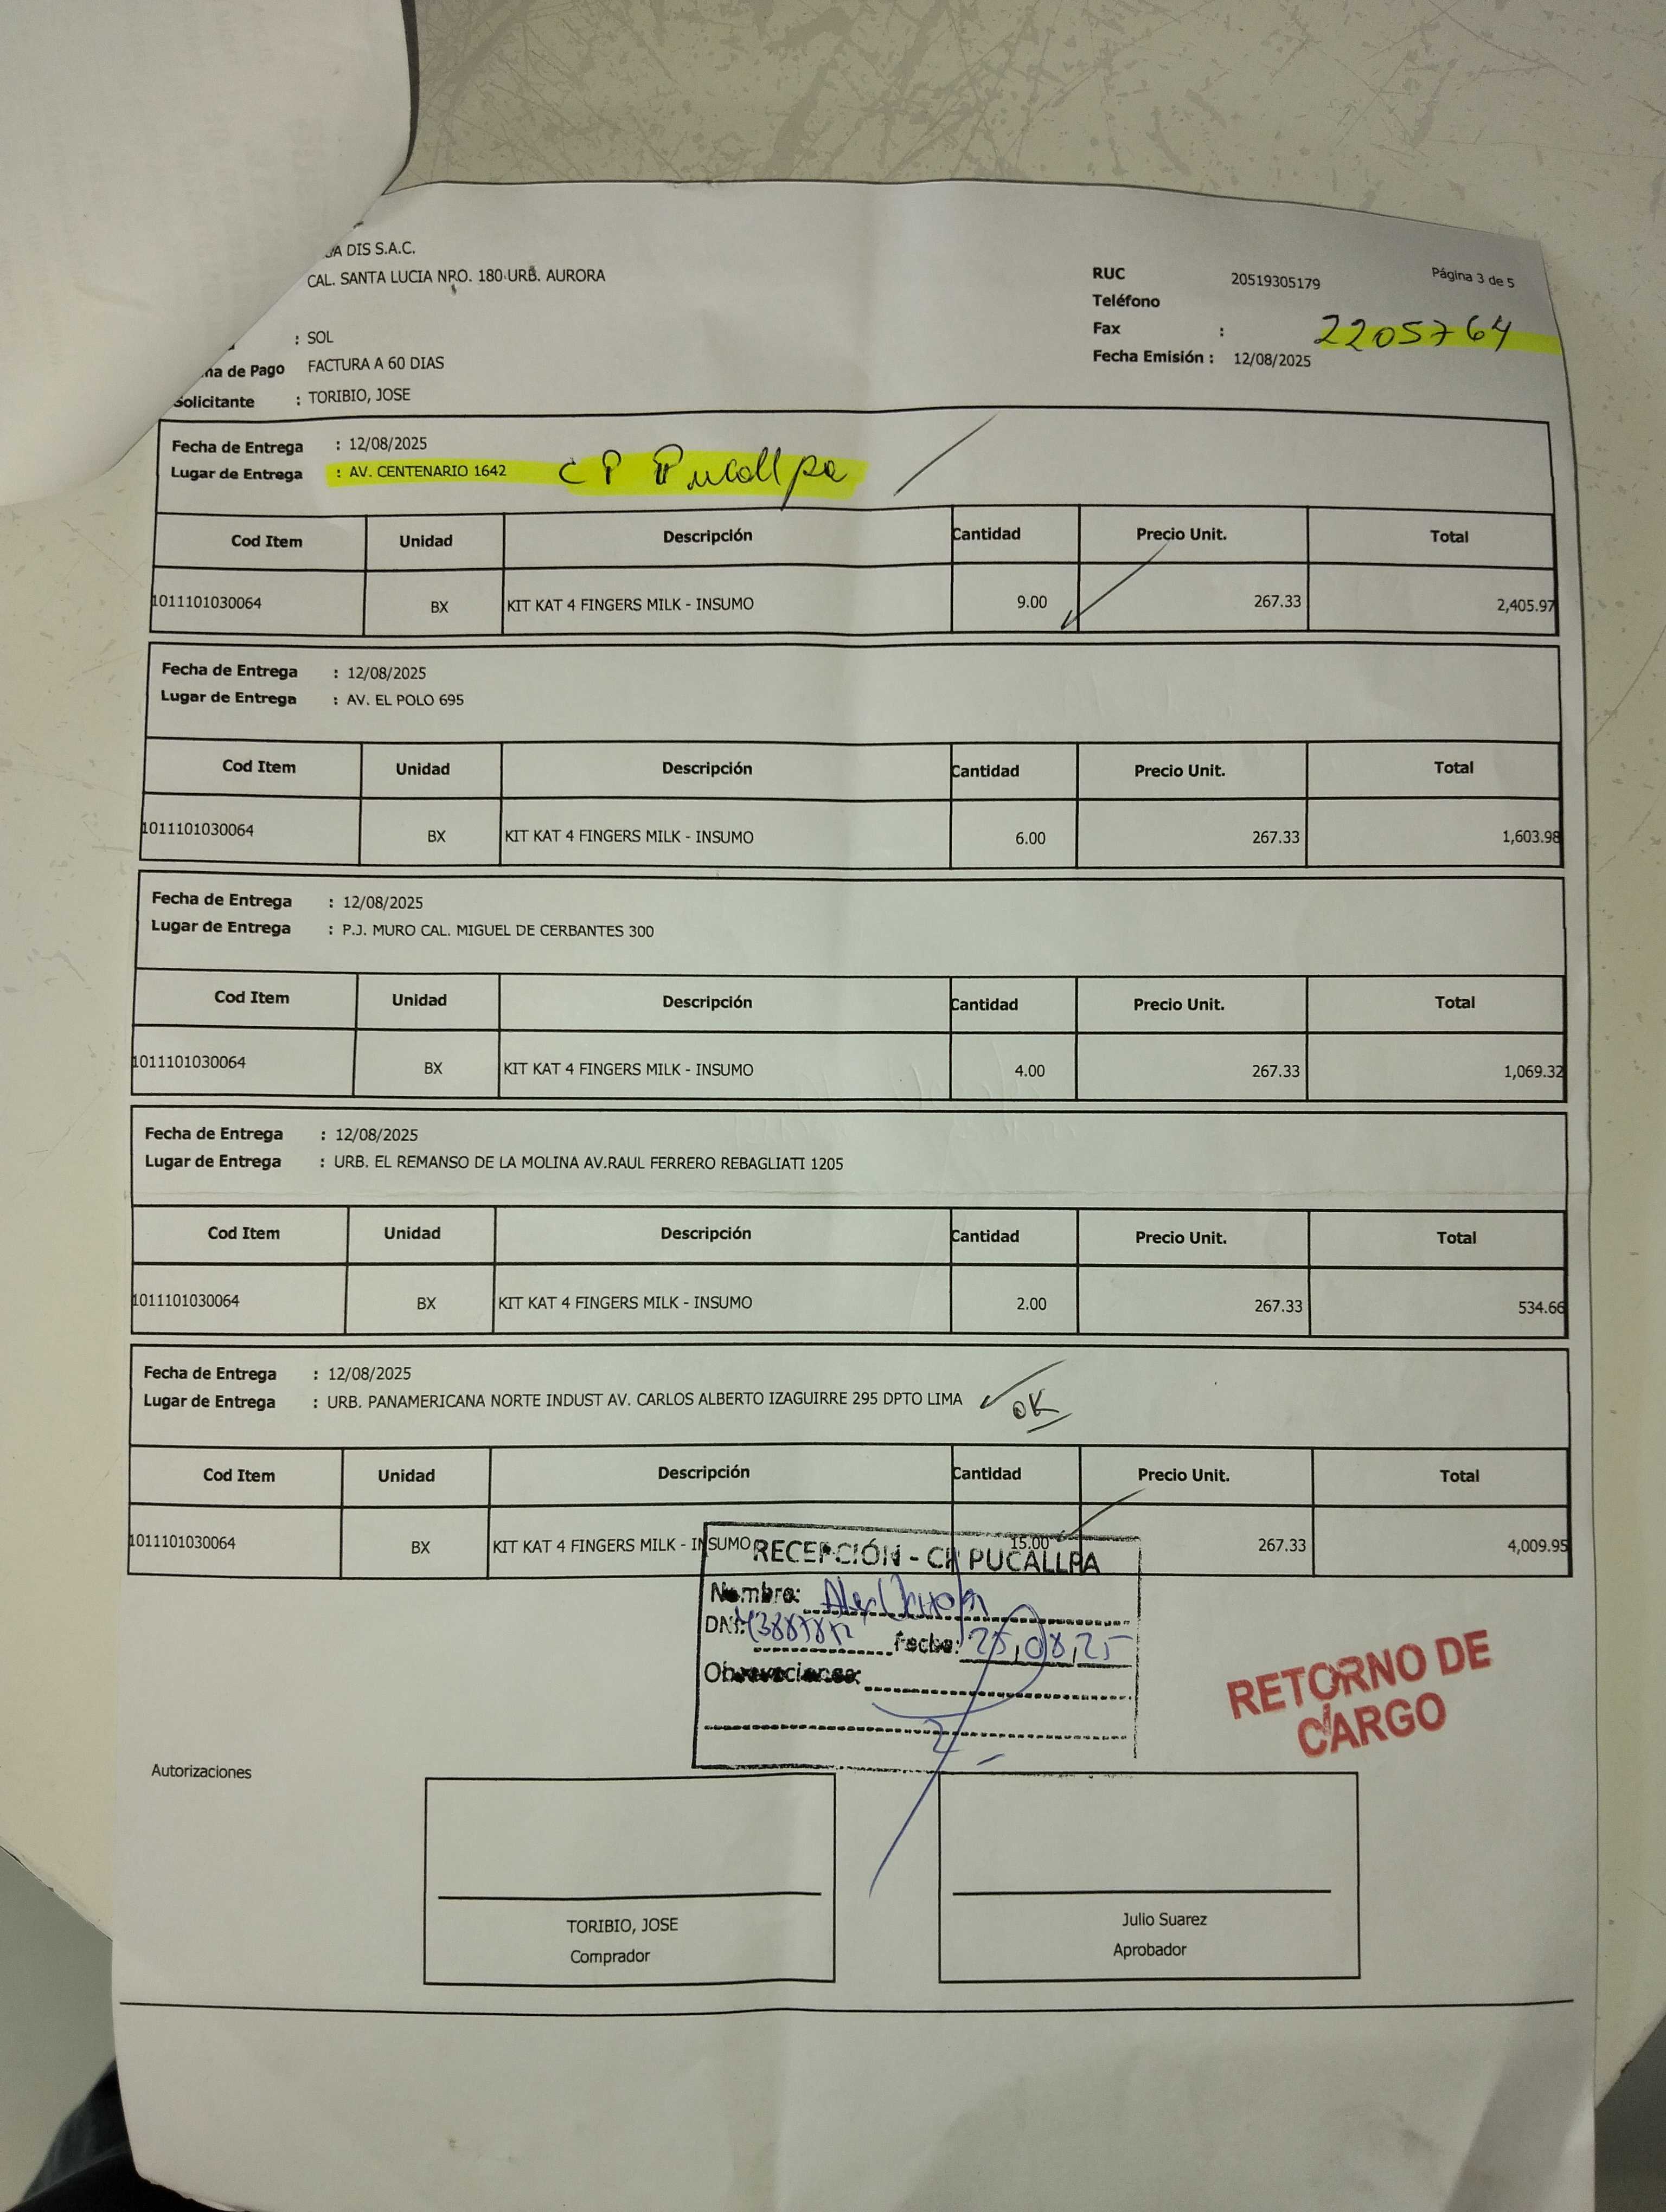 DIS S.A.C.
CAL. SANTA LUCIA NRO. 180 URB. AURORA
RUC 20519305179 Página 3 de 5
Teléfono
Fax : 2205764
Fecha Emisión : 12/08/2025
: SOL
de Pago FACTURA A 60 DIAS
Solicitante : TORIBIO, JOSE
Fecha de Entrega : 12/08/2025
Lugar de Entrega : AV. CENTENARIO 1642 CP Pucallpa
Cod Item Unidad Descripción Cantidad Precio Unit. Total
1011101030064 BX KIT KAT 4 FINGERS MILK - INSUMO 9.00 267.33 2,405.97
Fecha de Entrega : 12/08/2025
Lugar de Entrega : AV. EL POLO 695
Cod Item Unidad Descripción Cantidad Precio Unit. Total
1011101030064 BX KIT KAT 4 FINGERS MILK - INSUMO 6.00 267.33 1,603.98
Fecha de Entrega : 12/08/2025
Lugar de Entrega : P.J. MURO CAL. MIGUEL DE CERBANTES 300
Cod Item Unidad Descripción Cantidad Precio Unit. Total
1011101030064 BX KIT KAT 4 FINGERS MILK - INSUMO 4.00 267.33 1,069.32
Fecha de Entrega : 12/08/2025
Lugar de Entrega : URB. EL REMANSO DE LA MOLINA AV.RAUL FERRERO REBAGLIATI 1205
Cod Item Unidad Descripción Cantidad Precio Unit. Total
1011101030064 BX KIT KAT 4 FINGERS MILK - INSUMO 2.00 267.33 534.66
Fecha de Entrega : 12/08/2025
Lugar de Entrega : URB. PANAMERICANA NORTE INDUST AV. CARLOS ALBERTO IZAGUIRRE 295 DPTO LIMA OK
Cod Item Unidad Descripción Cantidad Precio Unit. Total
1011101030064 BX KIT KAT 4 FINGERS MILK - INSUMO 15.00 267.33 4,009.95
RECEPCIÓN - CP PUCALLPA
Nombre:
DNI: Fecha: 25,08,25
Observaciones:
RETORNO DE
CARGO
Autorizaciones
TORIBIO, JOSE
Comprador
Julio Suarez
Aprobador